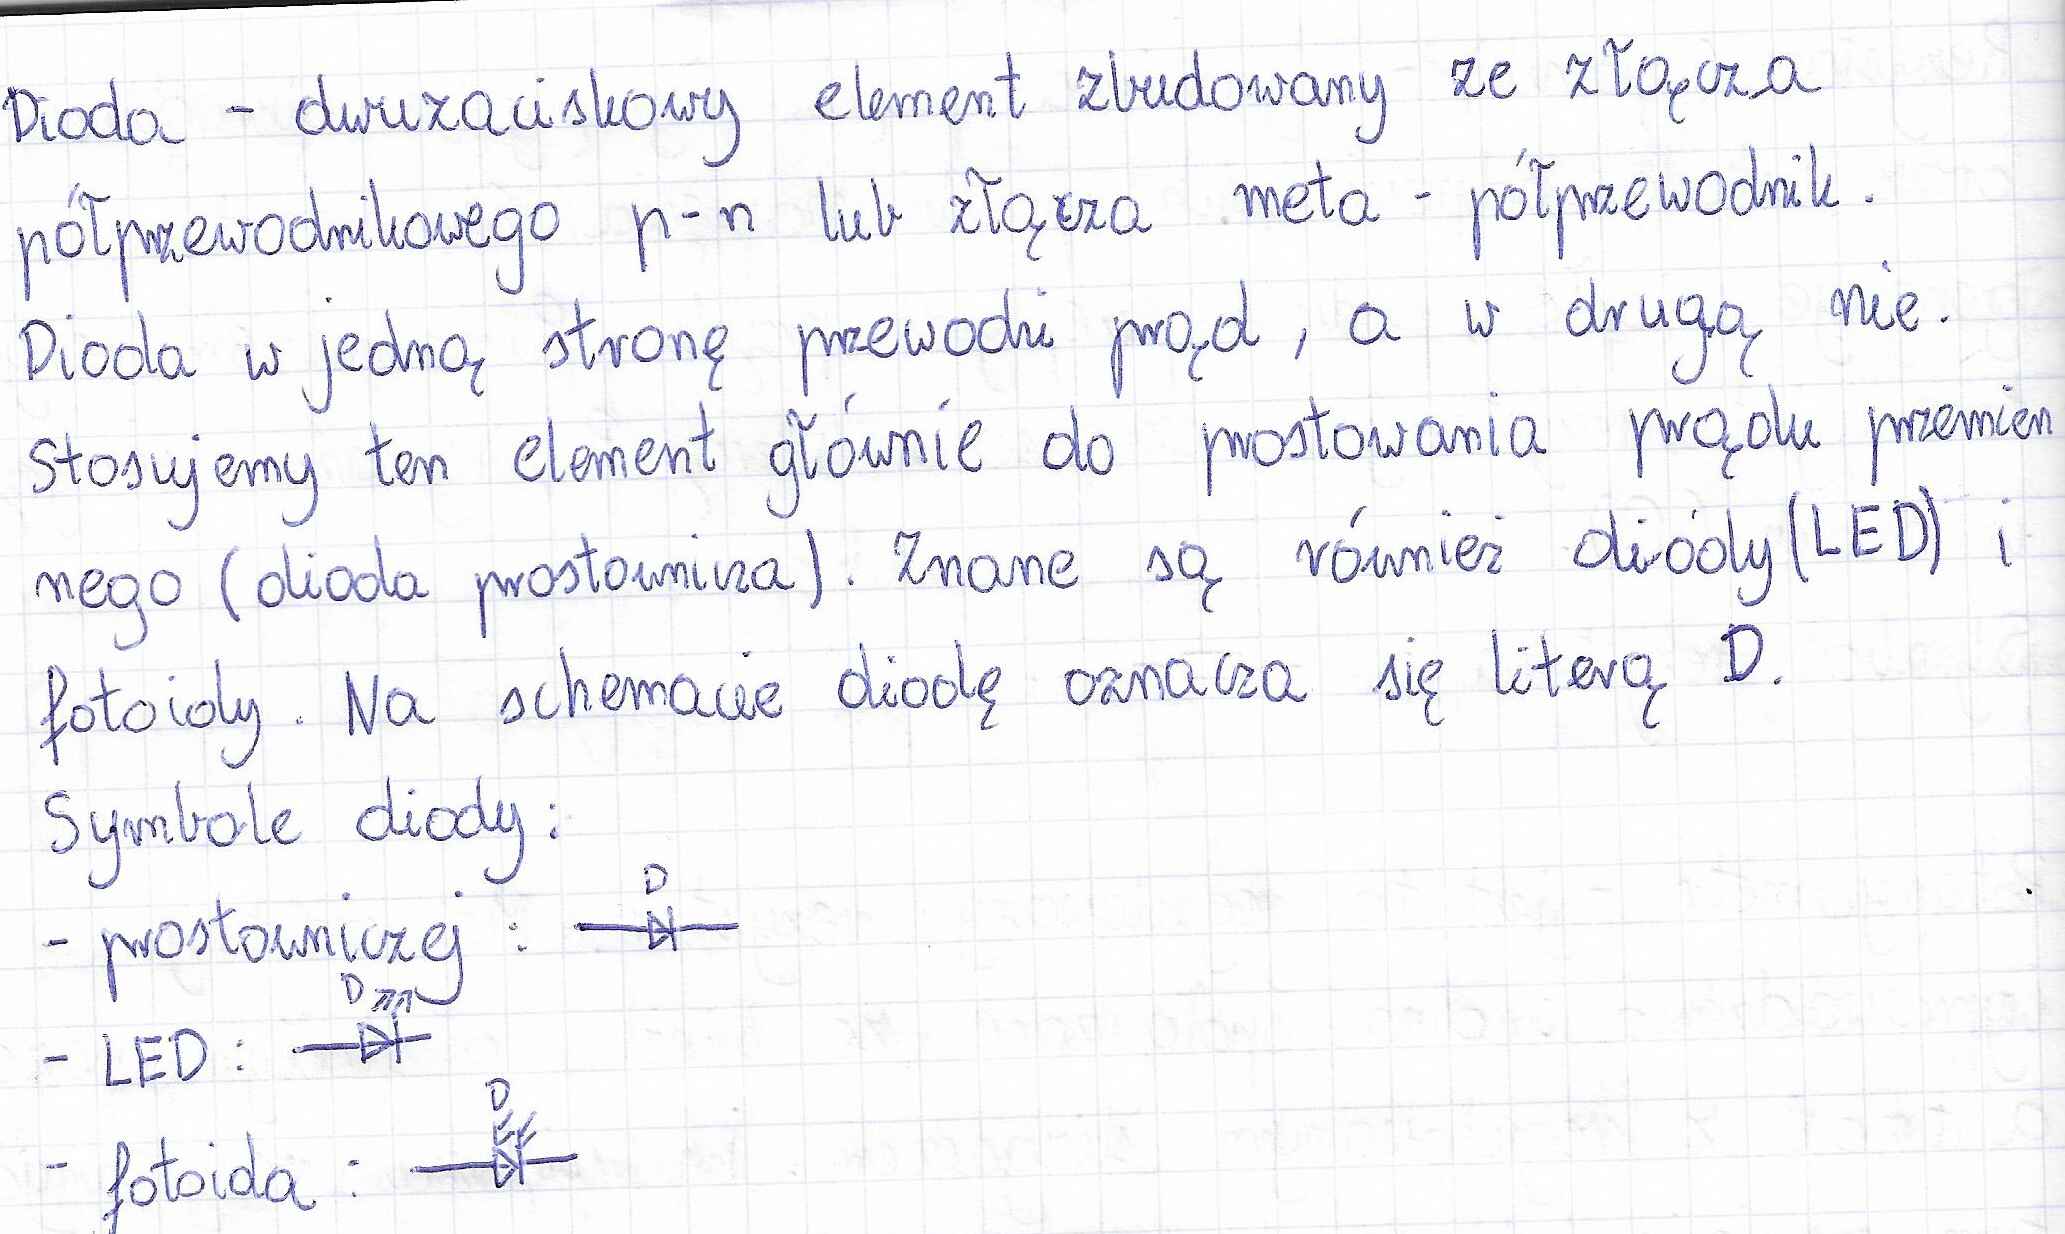 Dioda - dwuzaciskowy element zbudowany ze złącza
półprzewodnikowego p-n lub złącza meta - półprzewodnik.
Dioda w jedną stronę przewodzi prąd, a w drugą nie.
Stosujemy ten element głównie do prostowania prądu przemien
nego (dioda prostownicza). Znane są również diódy (LED) i
fotoidy. Na schemacie diodę oznacza się literą D.
Symbole diody:
- prostowniczej : D
- LED : D
- fotoida : D